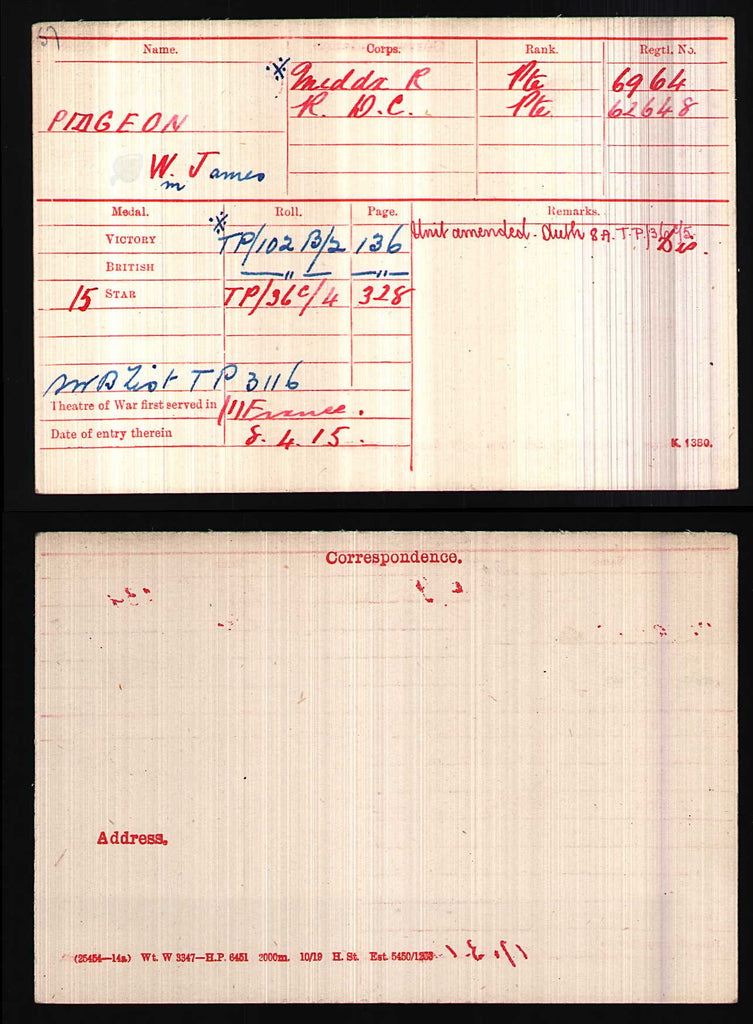 57
Name. Corps. Rank. Regtl. No.
※ Middx R Pte 6964
PIDGEON R. D.C. Pte 62648
Wm James
Medal. Roll. Page. Remarks.
VICTORY ※ TP/102 B/2 136 Unit amended - Auth 8A. T.P/
BRITISH —„— —„—
15 STAR TP/36c/4 328
SWB List TP 3116
Theatre of War first served in (1) France.
Date of entry therein 8.4.15.
K. 1380.
Correspondence.
Address.
(25454—14a) Wt. W 3347—H.P. 6451 2000m. 10/19 H. St. Est. 5450/1253